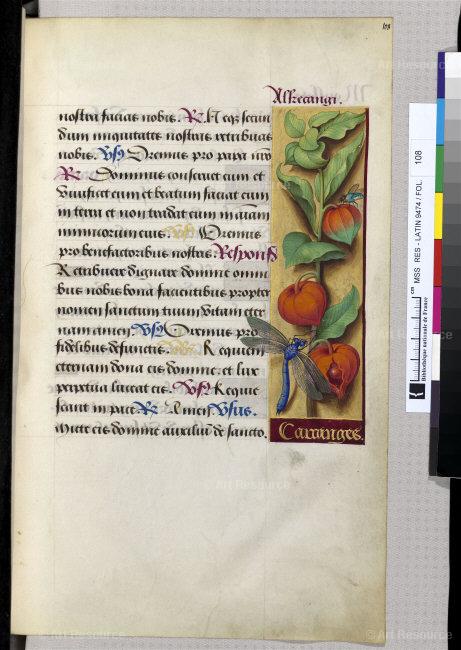 108
Alkecangi.
nostra facias nobis. R. Neqz secun
dum iniquitates nostras retribuas
nobis. Vsz Oremus pro papa nro
R Dominus conseruet eum et
viuificet eum et beatum faciat eum
in terra et non tradat eum in aïam
inimicorum eius. Vsz Oremus
pro benefactoribus nostris. Respons
Retribuere dignare domine omni
bus nobis bona facientibus propter
nomen sanctum tuum vitam eter
nam amen. Vsz Oremus pro
fidelibus defunctis. R Requiem
eternam dona eis domine: et lux
perpetua luceat eis. Vsz Requie
scant in pace. R Amen. Vsus.
Mitte eis domine auxiliū de sancto.
Caranges.
MSS RES - LATIN 9474 / FOL. 108
cm
Bibliothèque nationale de France
© Art Resource
© Art Resource
© Art Resource